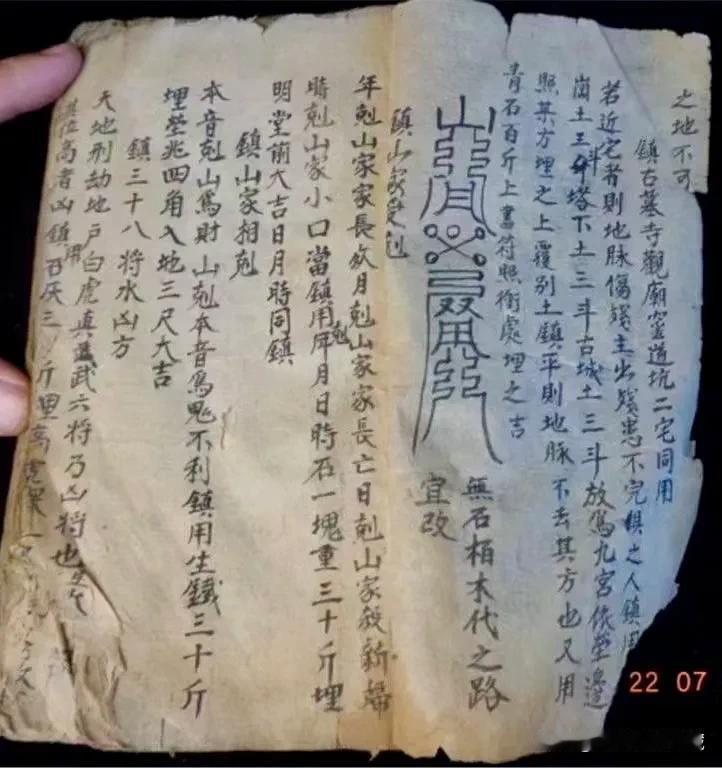 之地不可
鎮古墓寺觀廟窑道坑二宅同用
若近宅者則地脉傷殘主出殘患不完俱之人鎮用
崗土三斗塔下土三斗古城土三斗放為九宮依塋邊
照某方埋之上覆别土鎮平則地脉不去其方也又用
青石百斤上書符照衝處埋之吉
無石栢木代之路
宜改
鎮山家受剋
年剋山家家長故月剋山家家長亡日剋山家殺新婦
時剋山家小口當鎮用所剋月日時石一塊重三十斤埋
明堂前大吉日月時同鎮
鎮山家相剋
本音剋山為財山剋本音為鬼不利鎮用生鐵三十斤
埋塋兆四角入地三尺大吉
鎮三十八將水凶方
天地刑劫地户白虎真武六將乃凶將也
位高者凶鎮用石灰三斤埋高處
22 07